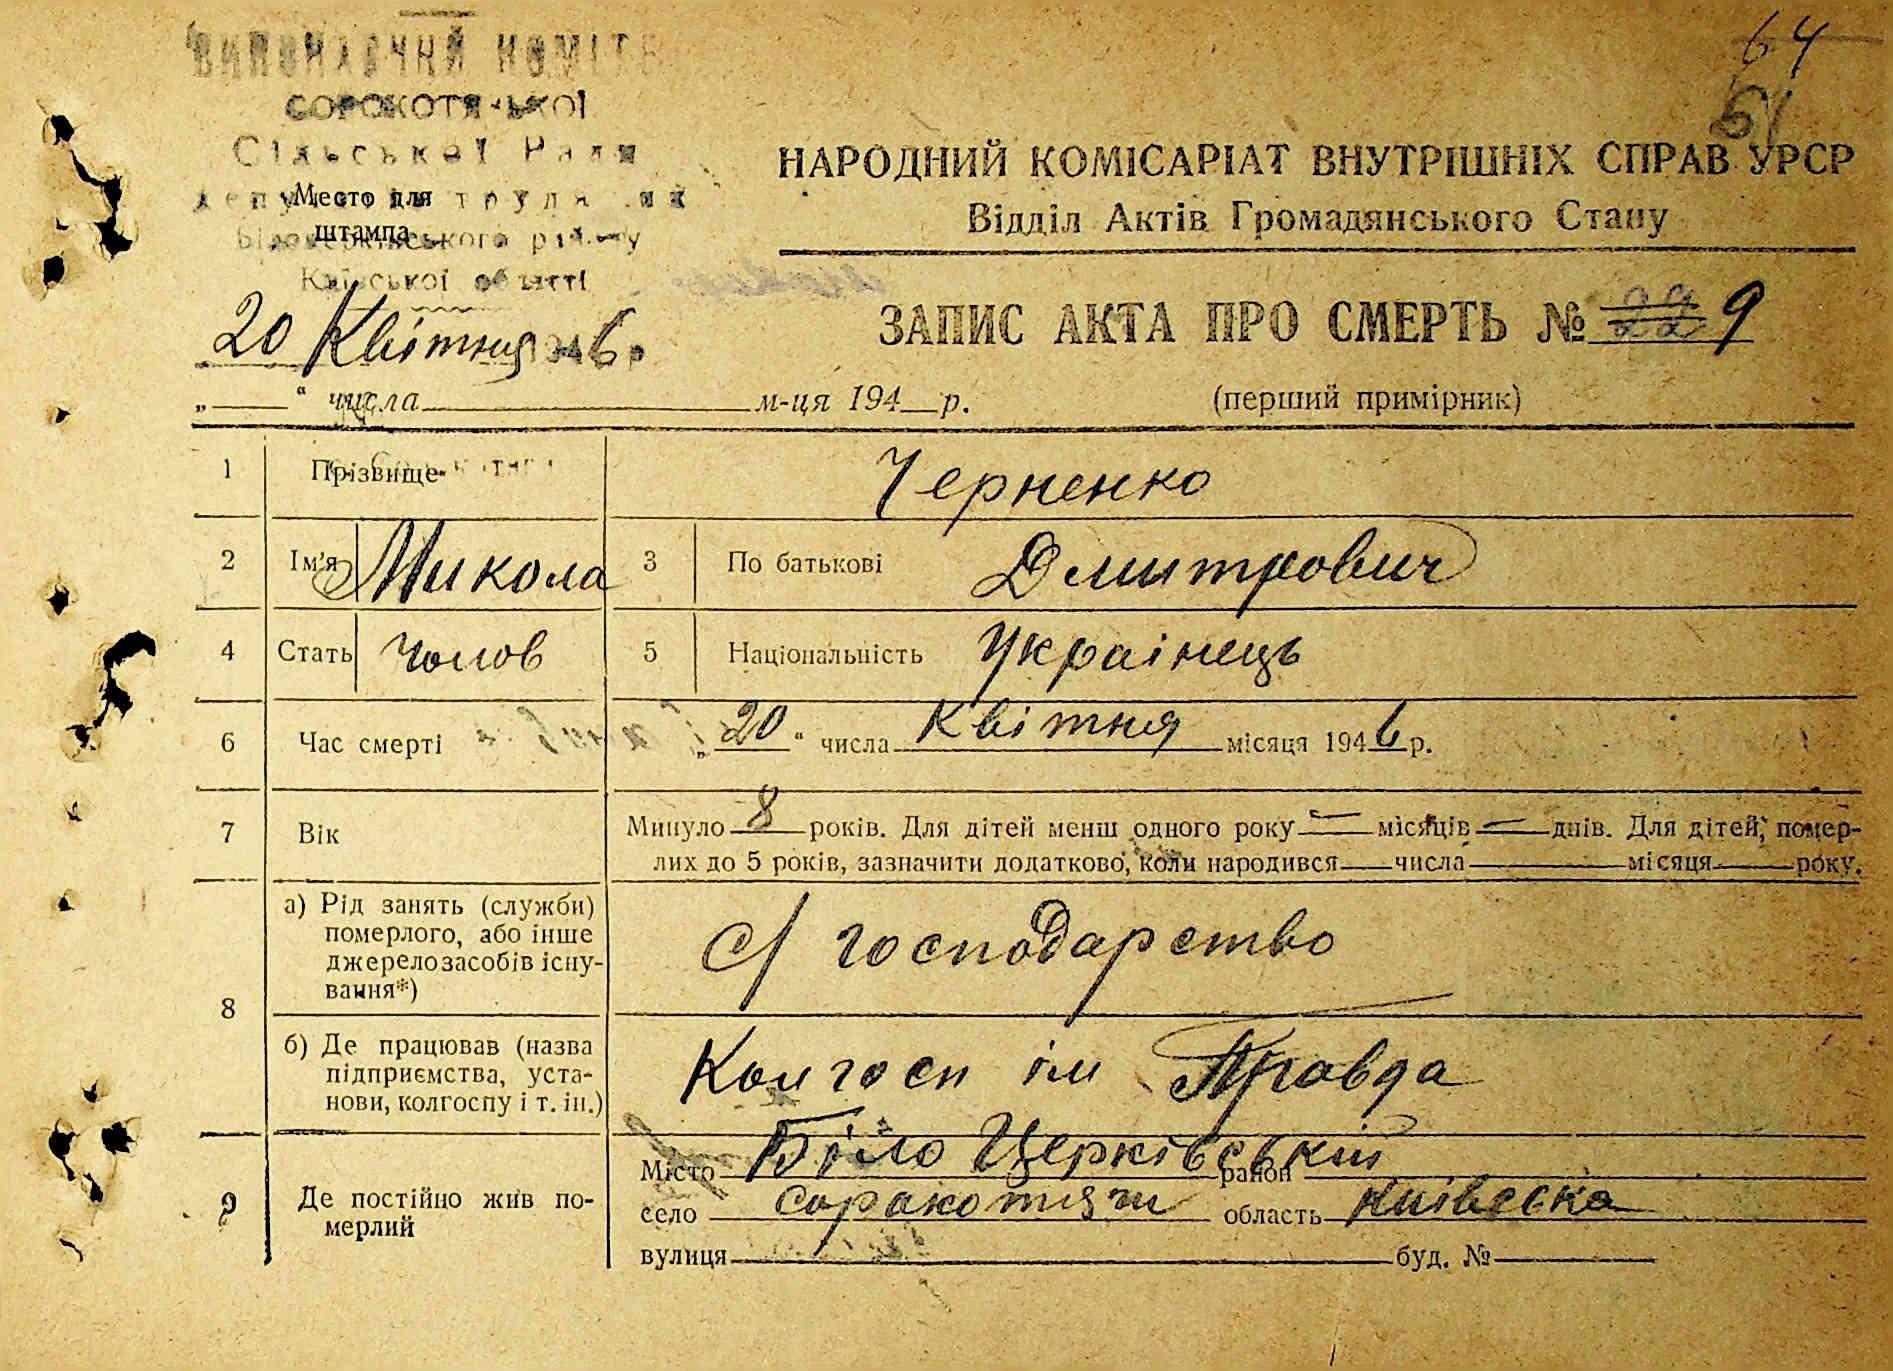 64
61
ВИКОНАВЧИЙ КОМІТЕ
СОРОКОТЯ ЬКОЇ
Сільської Ради
депу трудя их
Білоцерківського району
Київської області
Место для
штампа
НАРОДНИЙ КОМІСАРІАТ ВНУТРІШНІХ СПРАВ УРСР
Відділ Актів Громадянського Стану
20 Квітня 1946 р
ЗАПИС АКТА ПРО СМЕРТЬ № 9
„ “ числа м-ця 194 р.
(перший примірник)
1 Прізвище Черненко
2 Ім'я Микола 3 По батькові Дмитрович
4 Стать чолов 5 Національність Українець
6 Час смерті „20“ числа Квітня місяця 1946 р.
7 Вік Минуло 8 років. Для дітей менш одного року — місяців — днів. Для дітей, помер-
лих до 5 років, зазначити додатково, коли народився числа місяця року.
8 а) Рід занять (служби)
померлого, або інше
джерело засобів існу-
вання*)
с/господарство
б) Де працював (назва
підприємства, уста-
нови, колгоспу і т. ін.)
Колгосп ім Правда
9 Де постійно жив по-
мерлий
Місто Біло Церківський район
село сорокотяги область київська
вулиця буд. №